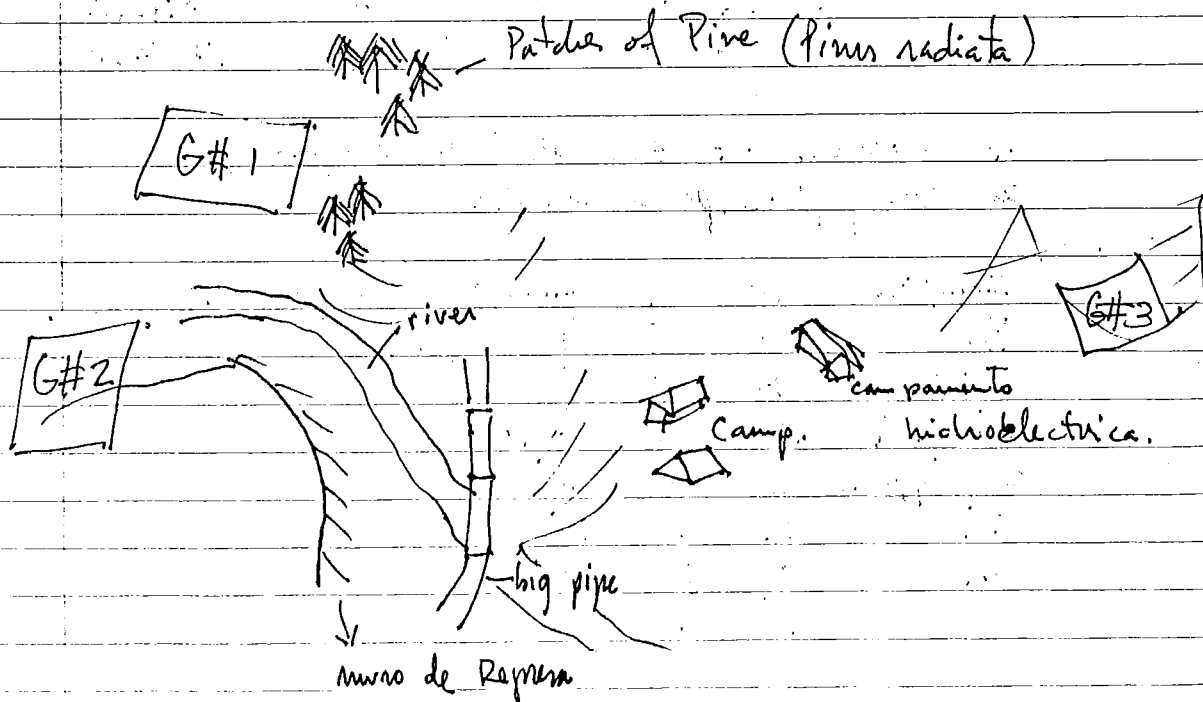 Patches of Pine (Pinus radiata)
G# 1
river
G#3
G#2
campamento
hidroelectrica.
Camp.
big pipe
muro de Represa